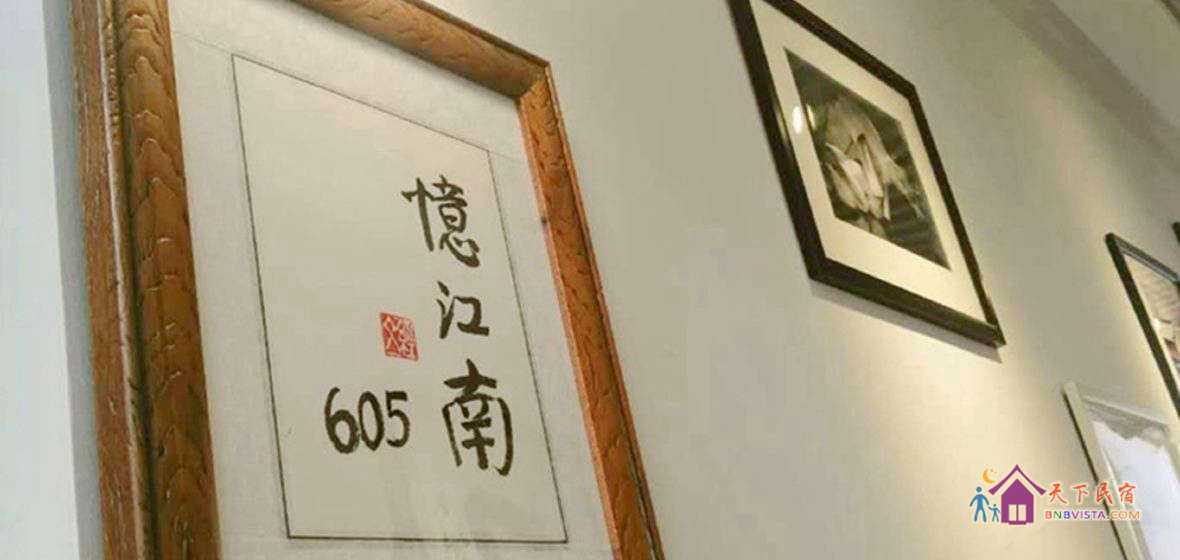 憶江南
605
天下民宿
BNBVISTA.COM